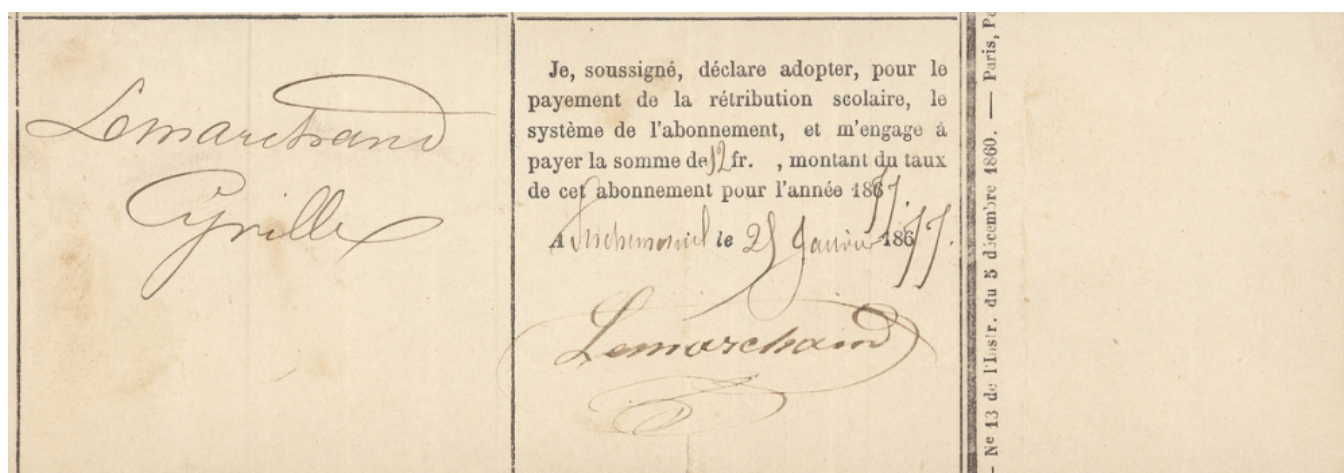 Lemarchand
Cyrille
Je, soussigné, déclare adopter, pour le
payement de la rétribution scolaire, le
système de l'abonnement, et m'engage à
payer la somme de 12 fr. , montant du taux
de cet abonnement pour l'année 1867 77.
A le 25 Janvier 186 77.
Lemarchand
- No 13 de l'Instr. du 5 décembre 1860. — Paris,